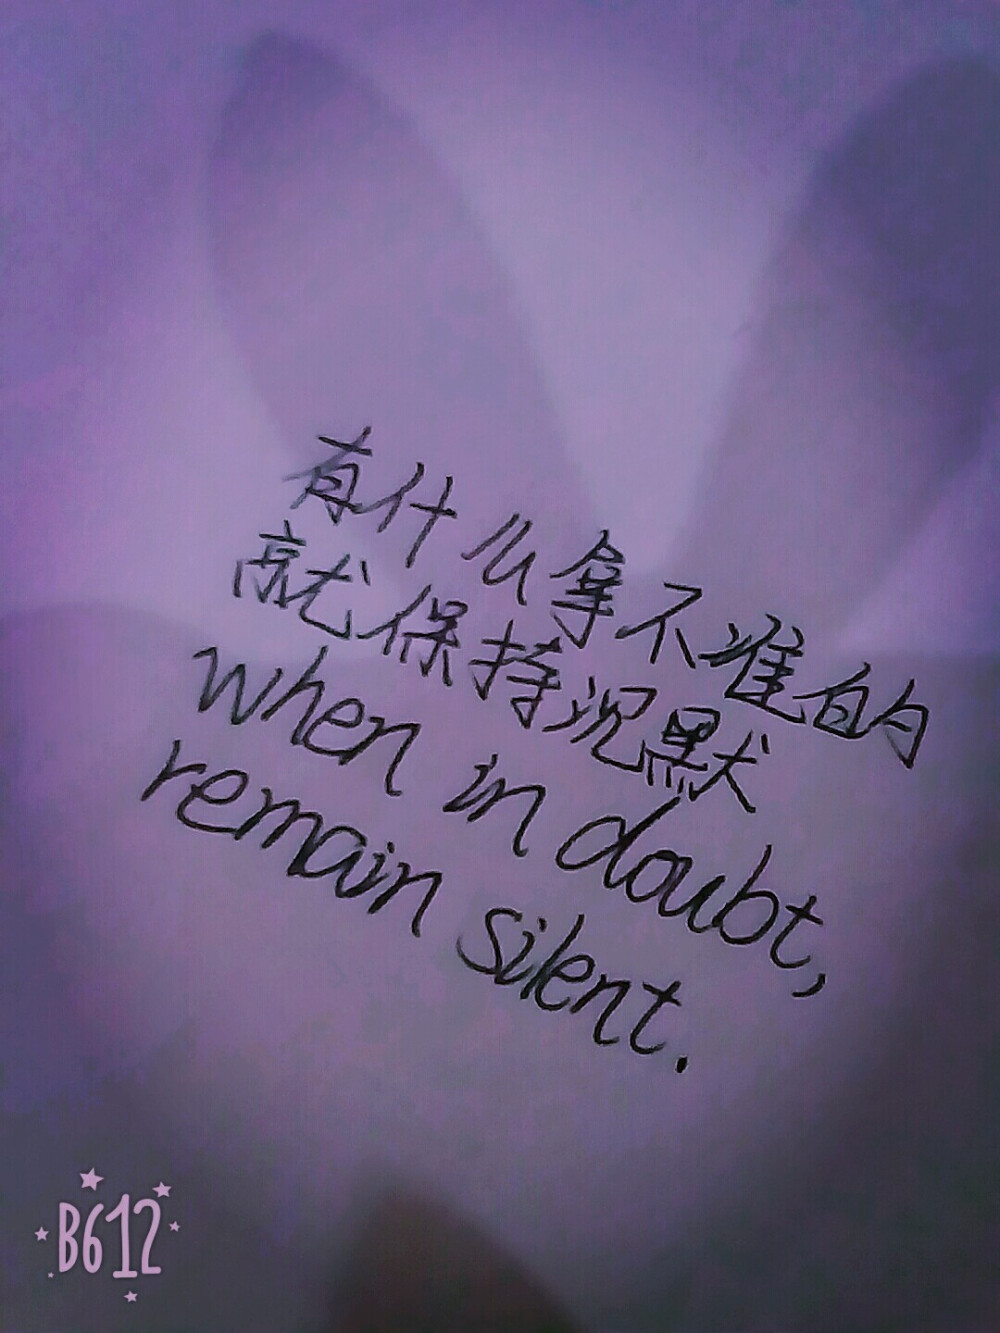 有什么拿不准的
就保持沉默
when in doubt,
remain silent.
B612